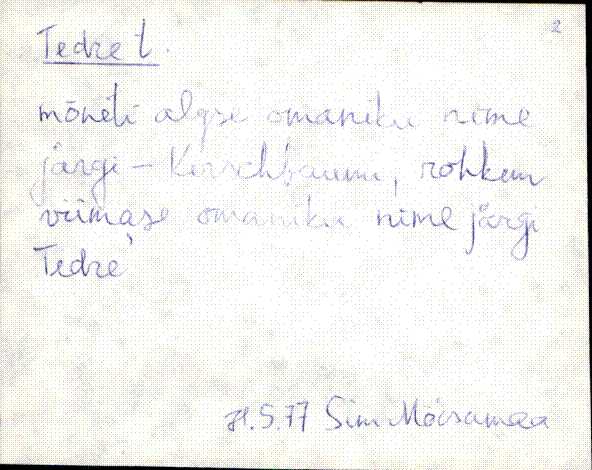 2
Tedre t.
mõneti algse omaniku nime
järgi - Kirschbaumi, rohkem
viimase omaniku nime järgi
Tedre
S.77 Sim Mõisamaa